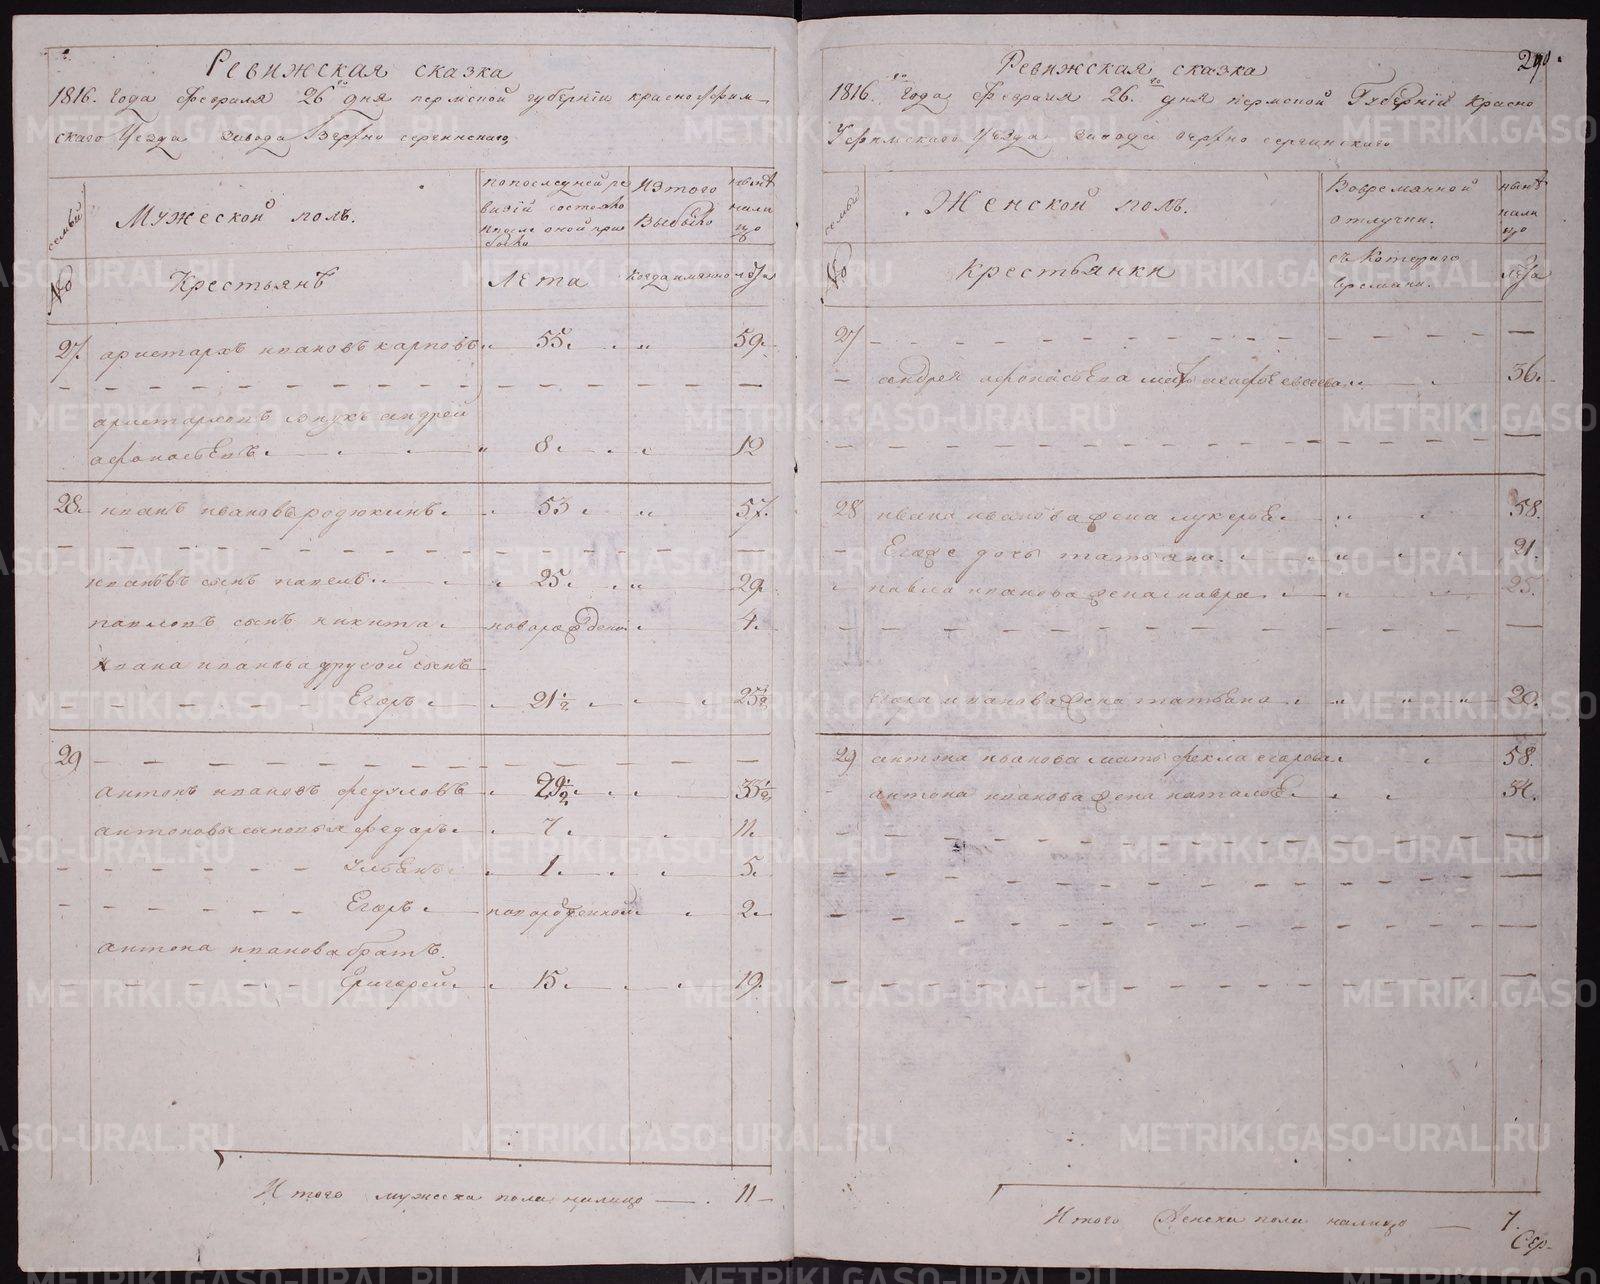 Ревижская сказка
1816. года февраля 26го дня пермской губернїи красноуфим-
скаго уезда завода Верхно сергинскаго,
№ семьи
Мужеской полъ.
попоследней ре
визїй состояло
ипосле оной при
было
Изтого
Выбыло
ныне
нали
цо
Крестьянѣ
Лета
Когда имянно
лѣта
27. аристархъ ивановъ карповъ 55. 59.
аристарховъ внукъ андрей
афонасьевъ 8. 12
28. иванъ ивановъ родюкинъ. 53. 57.
ивановъ сынъ павелъ 25. 29.
павловъ сынъ никита новорожденъ 4.
ивана иванова другой сынъ
Егоръ 21 1/2 25 1/2
29
антонъ ивановъ федуловъ 29 1/2 33 1/2
антоновы сыновья федаръ 7 11.
1. 5.
Егоръ новорожденной 2.
антона иванова братъ.
Григорей 15. 19.
Итого мужеска пола налицо — 11 —
290.
Ревижская сказка
1816.го года февраля 26.го дня пермской Губернїй Красно
Уфимскаго уѣзда завода верхно сергинскаго
№ семьи
Женской полъ.
Вовремянной
отлучки.
ныне
нали
цо
крестьянки
съ Котораго
времяни.
лѣта
27
андрея афонасьева мать агафья евсеева 36.
28 ивана иванова жена лукерья 58.
Егоже дочь татьяна 21.
павла иванова жена мавра 25.
егора иванова жена татьяна 20.
29 антона иванова мать фекла егорова 58.
антона иванова жена наталья 34.
Итого женска пола налицо — 7.
Сер-